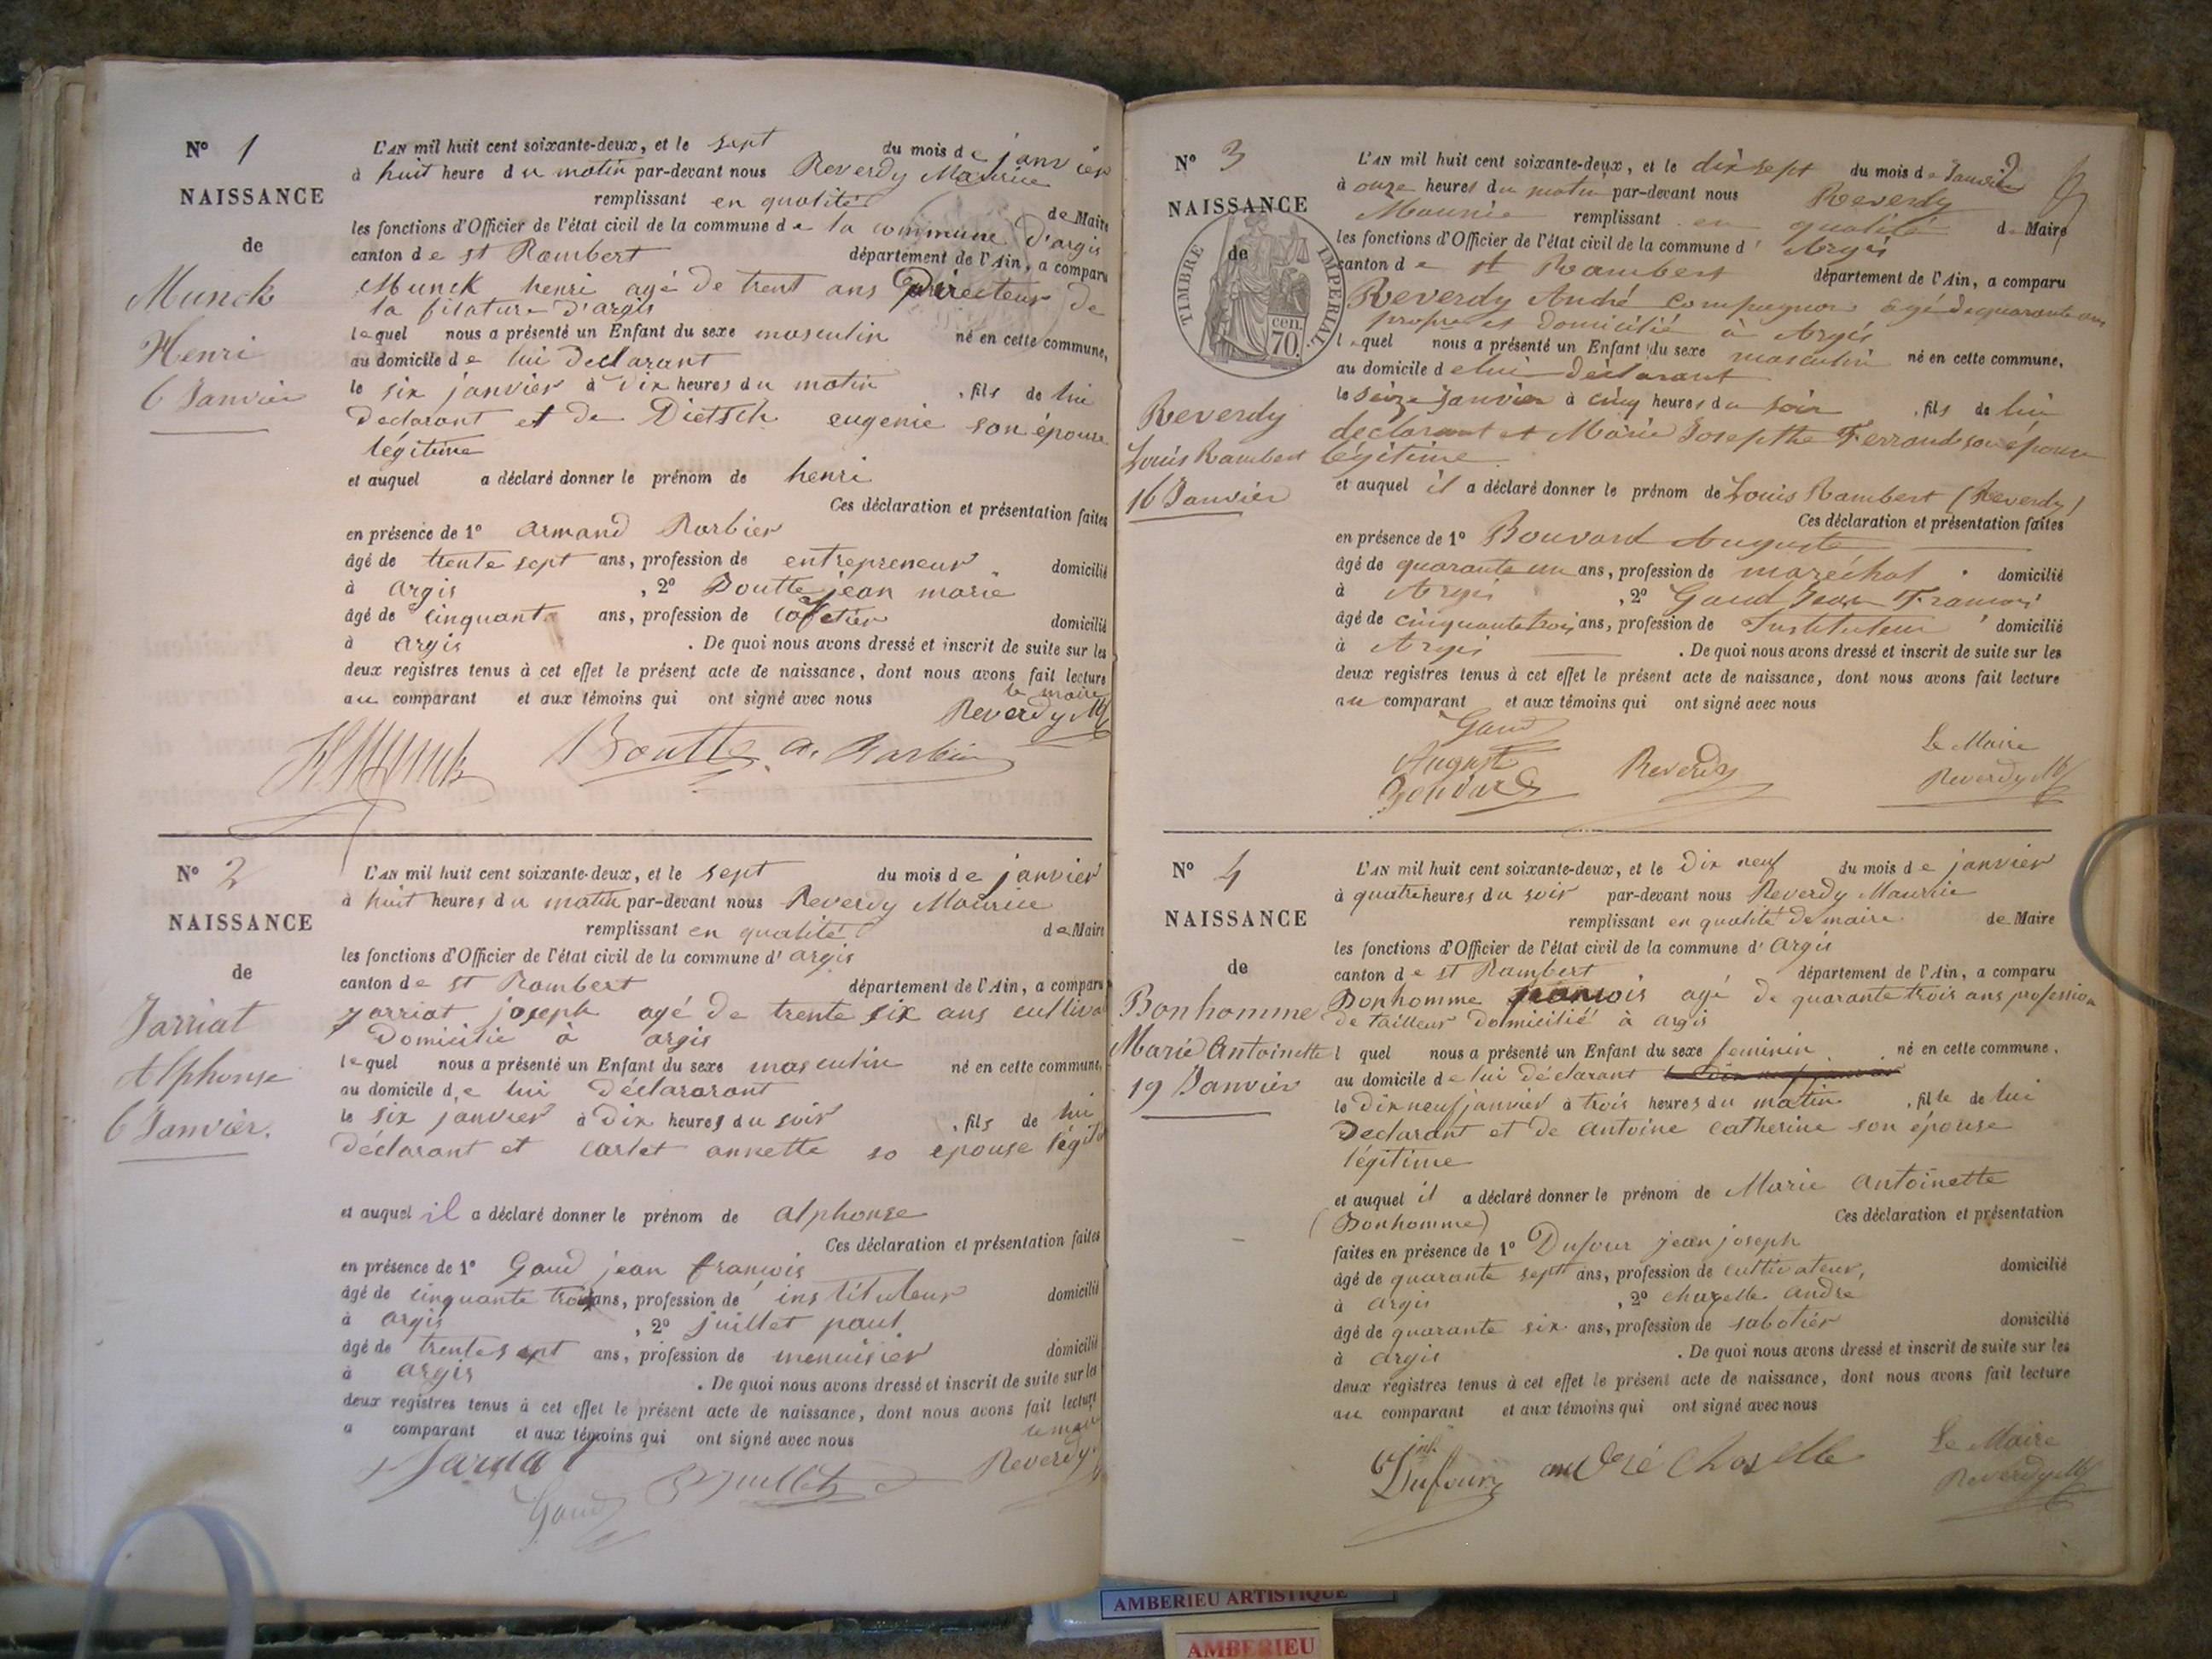 N° 1
NAISSANCE
de
Munck
Henri
6 Janvier
L'AN mil huit cent soixante-deux, et le sept du mois de janvier
à huit heure du matin par-devant nous Reverdy Maurice
remplissant en qualité de Maire
les fonctions d'Officier de l'état civil de la commune de la commune d'argis
canton de st Rambert département de l'Ain, a comparu
Munck henri agé de trent ans Directeur de
la filature d'argis
lequel nous a présenté un Enfant du sexe masculin né en cette commune,
au domicile de lui declarant
le six janvier à dix heures du matin , fils de lui
declarant et de Dietsch eugenie son épouse
légitime
et auquel a déclaré donner le prénom de henri
Ces déclaration et présentation faites
en présence de 1° armand Barbier
âgé de trente sept ans, profession de entrepreneur domicilié
à argis , 2° Boutte jean marie
âgé de cinquante ans, profession de cafetier domicilié
à argis . De quoi nous avons dressé et inscrit de suite sur les
deux registres tenus à cet effet le présent acte de naissance, dont nous avons fait lecture
au comparant et aux témoins qui ont signé avec nous le maire
Reverdy M
H. Munck Boutte a. Barbier
N° 2
NAISSANCE
de
Jarriat
Alphonse
6 Janvier.
L'AN mil huit cent soixante-deux, et le sept du mois de janvier
à huit heures du matin par-devant nous Reverdy Maurice
remplissant en qualité de Maire
les fonctions d'Officier de l'état civil de la commune d' argis
canton de st Rambert département de l'Ain, a comparu
jarriat joseph agé de trente six ans cultiva
domicilie à argis
lequel nous a présenté un Enfant du sexe masculin né en cette commune,
au domicile de lui déclararant
le six janvier à dix heures du soir , fils de lui
déclarant et carlet annette so épouse légit
et auquel il a déclaré donner le prénom de alphonse
Ces déclaration et présentation faites
en présence de 1° Gaud jean francois
âgé de cinquante trois ans, profession de instituteur domicilié
à argis , 2° juillet paul
âgé de trente sept ans, profession de menuisier domicilié
à argis . De quoi nous avons dressé et inscrit de suite sur les
deux registres tenus à cet effet le présent acte de naissance, dont nous avons fait lecture
a comparant et aux témoins qui ont signé avec nous le maire
Jarriat Juillet Reverdy
Gaud
N° 3
NAISSANCE
de
TIMBRE IMPERIAL
70 cen.
Reverdy
Louis Rambert
16 Janvier
L'AN mil huit cent soixante-deux, et le dix sept du mois de Janvier
à onze heures du matin par-devant nous Reverdy
Maurice remplissant en qualité de Maire
les fonctions d'Officier de l'état civil de la commune d' Argis
canton de st Rambert département de l'Ain, a comparu
Reverdy André Compagnon agé de quarante ans
propre et domicilié à Argis
lequel nous a présenté un Enfant du sexe masculin né en cette commune,
au domicile de lui déclarant
le seize Janvier à cinq heures du soir , fils de lui
declarant et Marie Josepthe Ferrand son épouse
légitime
et auquel il a déclaré donner le prénom de Louis Rambert (Reverdy)
Ces déclaration et présentation faites
en présence de 1° Bouvard Auguste
âgé de quarante un ans, profession de maréchal domicilié
à Argis , 2° Gaud Jean Francois
âgé de cinquante trois ans, profession de Instituteur domicilié
à Argis . De quoi nous avons dressé et inscrit de suite sur les
deux registres tenus à cet effet le présent acte de naissance, dont nous avons fait lecture
au comparant et aux témoins qui ont signé avec nous
Gaud
August Le Maire
Bouvard Reverdy Reverdy M
N° 4
NAISSANCE
de
Bonhomme
Marie Antoinette
19 Janvier
L'AN mil huit cent soixante-deux, et le dix neuf du mois de janvier
à quatre heures du soir par-devant nous Reverdy Maurice
remplissant en qualité de maire de Maire
les fonctions d'Officier de l'état civil de la commune d' argis
canton de st Rambert département de l'Ain, a comparu
Bonhomme francois agé de quarante trois ans profession
de tailleur domicilié à argis
l quel nous a présenté un Enfant du sexe feminin né en cette commune,
au domicile de lui déclarant
le dix neuf janvier à trois heures du matin , fille de lui
declarant et de antoine catherine son épouse
légitime
et auquel il a déclaré donner le prénom de Marie antoinette
(Bonhomme) Ces déclaration et présentation
faites en présence de 1° Dufour jean joseph
âgé de quarante sept ans, profession de cultivateur, domicilié
à argis , 2° chazelle andre
âgé de quarante six ans, profession de sabotier domicilié
à argis . De quoi nous avons dressé et inscrit de suite sur les
deux registres tenus à cet effet le présent acte de naissance, dont nous avons fait lecture
au comparant et aux témoins qui ont signé avec nous
Le Maire
Dufour andré chaselle Reverdy M
AMBERIEU ARTISTIQUE
AMBERIEU